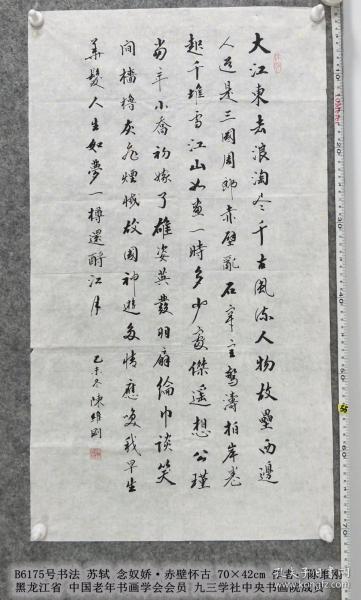 大江東去浪淘尽千古風流人物故壘西邊
人道是三國周郎赤壁亂石穿空驚濤拍岸卷
起千堆雪江山如畫一時多少豪傑遙想公瑾
當年小喬初嫁了雄姿英發羽扇綸巾談笑
間檣櫓灰飛煙滅故國神遊多情應笑我早生
華髮人生如夢一樽還酹江月
乙未冬陳維剛
B6175号书法 苏轼 念奴娇·赤壁怀古 70×42cm 作者:陈维刚
黑龙江省 中国老年书画学会会员 九三学社中央书画院成员